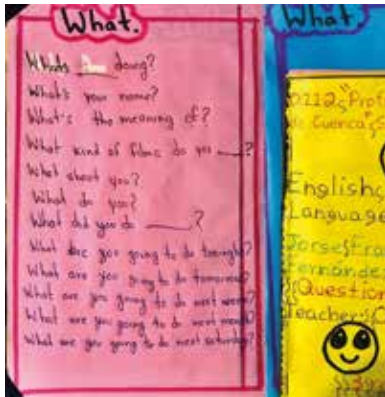 What.
What's ___ doing?
What's your name?
What's the meaning of?
What kind of films do you ___?
What about you?
What do you?
What did you do ___?
What are you going to do tonight?
What are you going to do tomorrow?
What are you going to do next week?
What are you going to do next month?
What are you going to do next saturday?
What.
0112 Prof
de Cuenca
English
Language
Jorge Fra
Fernande
Question
Teacher